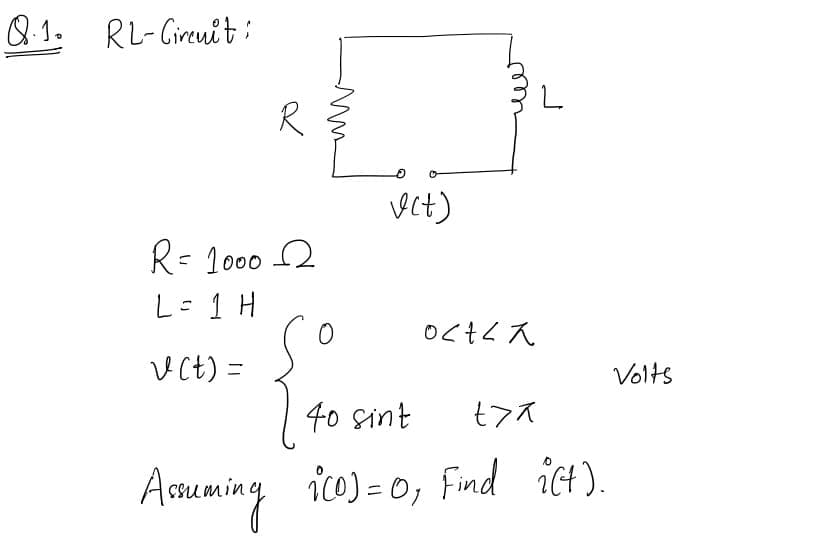 Q.1. RL-Circuit:
R
L
v(t)
R = 1000 Ω
L = 1 H
v(t) = { 0 0<t<π
40 sint t>π Volts
Assuming i(0) = 0, Find i(t).